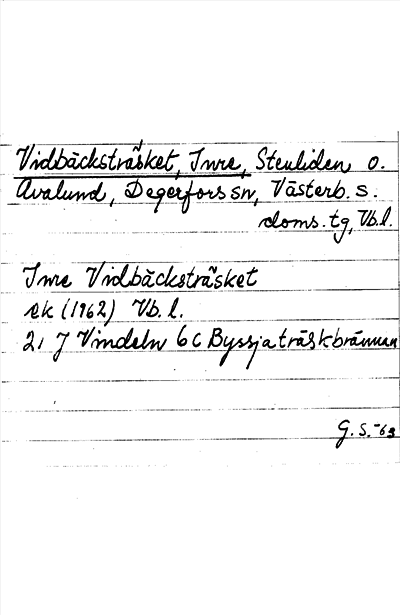 Vidbäcksträsket, Inre, Stenliden o.
Avalund, Degerfors sn, Västerb. s.
doms. tg, Vb. l.
Inre Vidbäcksträsket
ek (1962) Vb. l.
21 J Vindeln 6 c Byssjaträskbrännan
G. S. -63